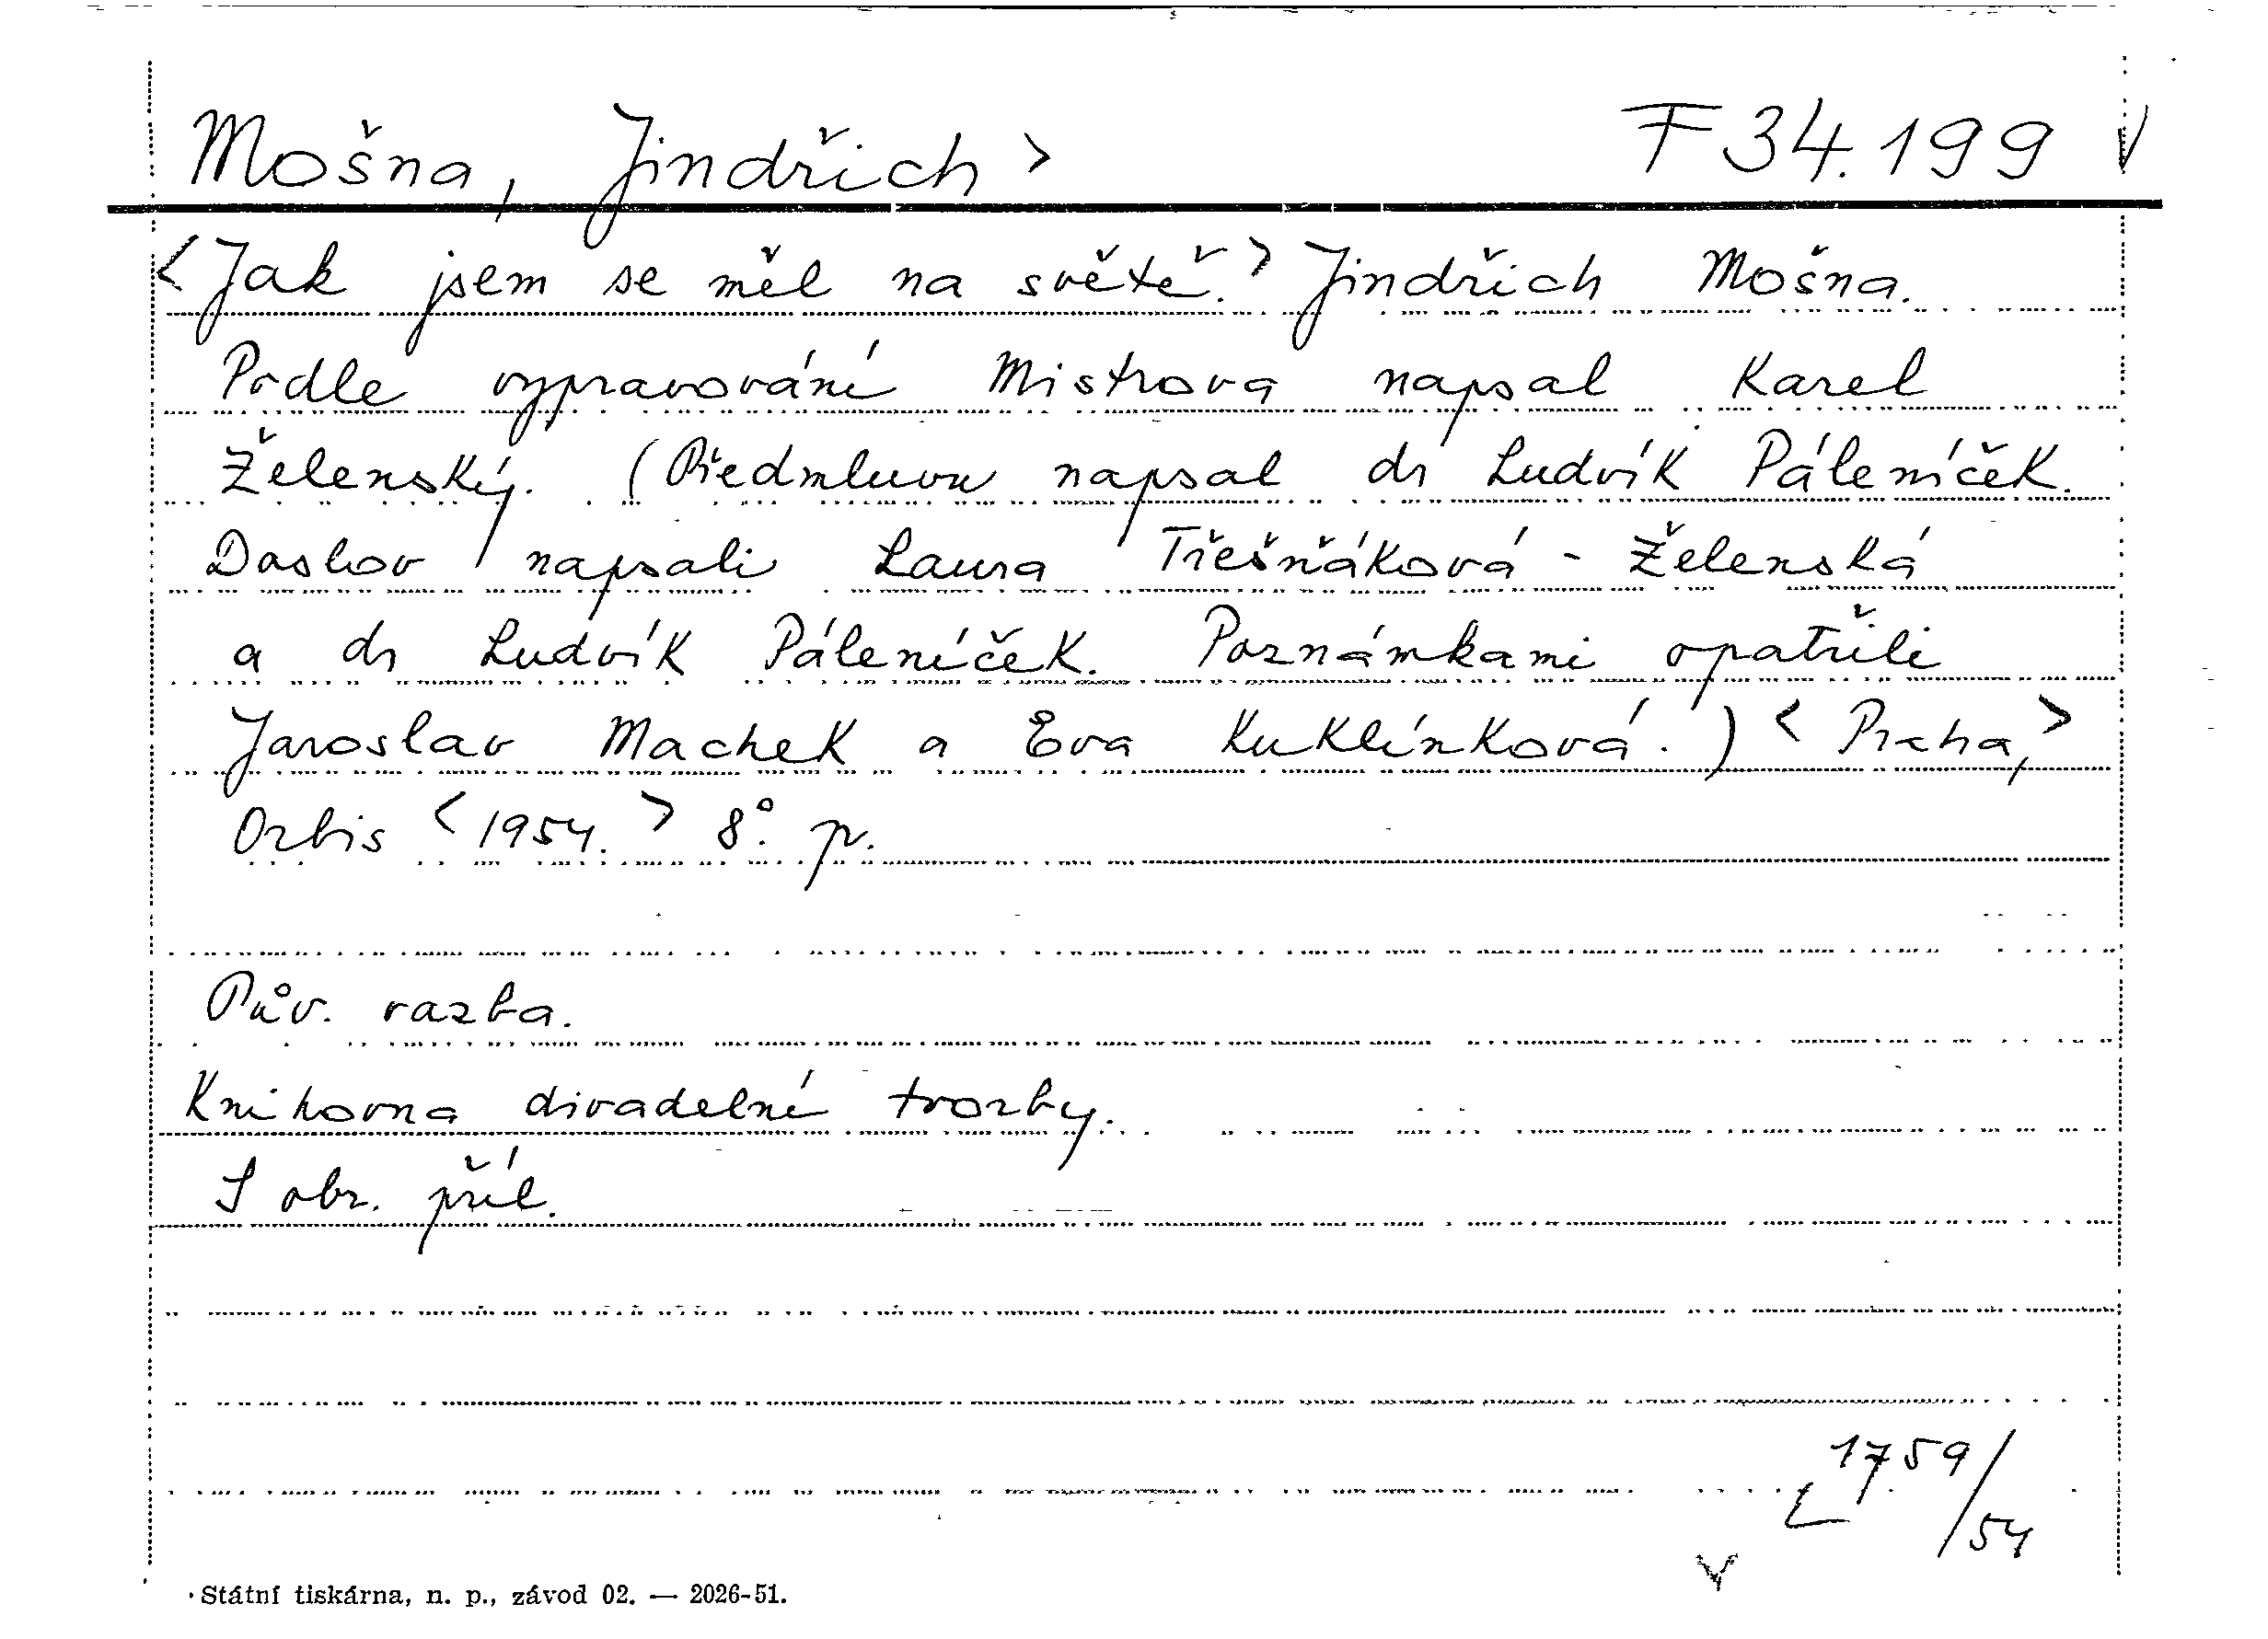 Mošna, Jindřich > F 34.199 V
<Jak jsem se měl na světě.> Jindřich Mošna.
Podle vypravování Mistrova napsal Karel
Želenský. (Předmluvu napsal dr Ludvík Páleníček.
Doslov napsali Laura Třešňáková - Želenská
a dr Ludvík Páleníček. Poznámkami opatřili
Jaroslav Machek a Eva Kuklínková.) < Praha,>
Orbis <1954.> 8°. p.
Pův. vazba.
Knihovna divadelní tvorby.
S obr. příl.
L 1759/54
V
Státní tiskárna, n. p., závod 02. — 2026-51.